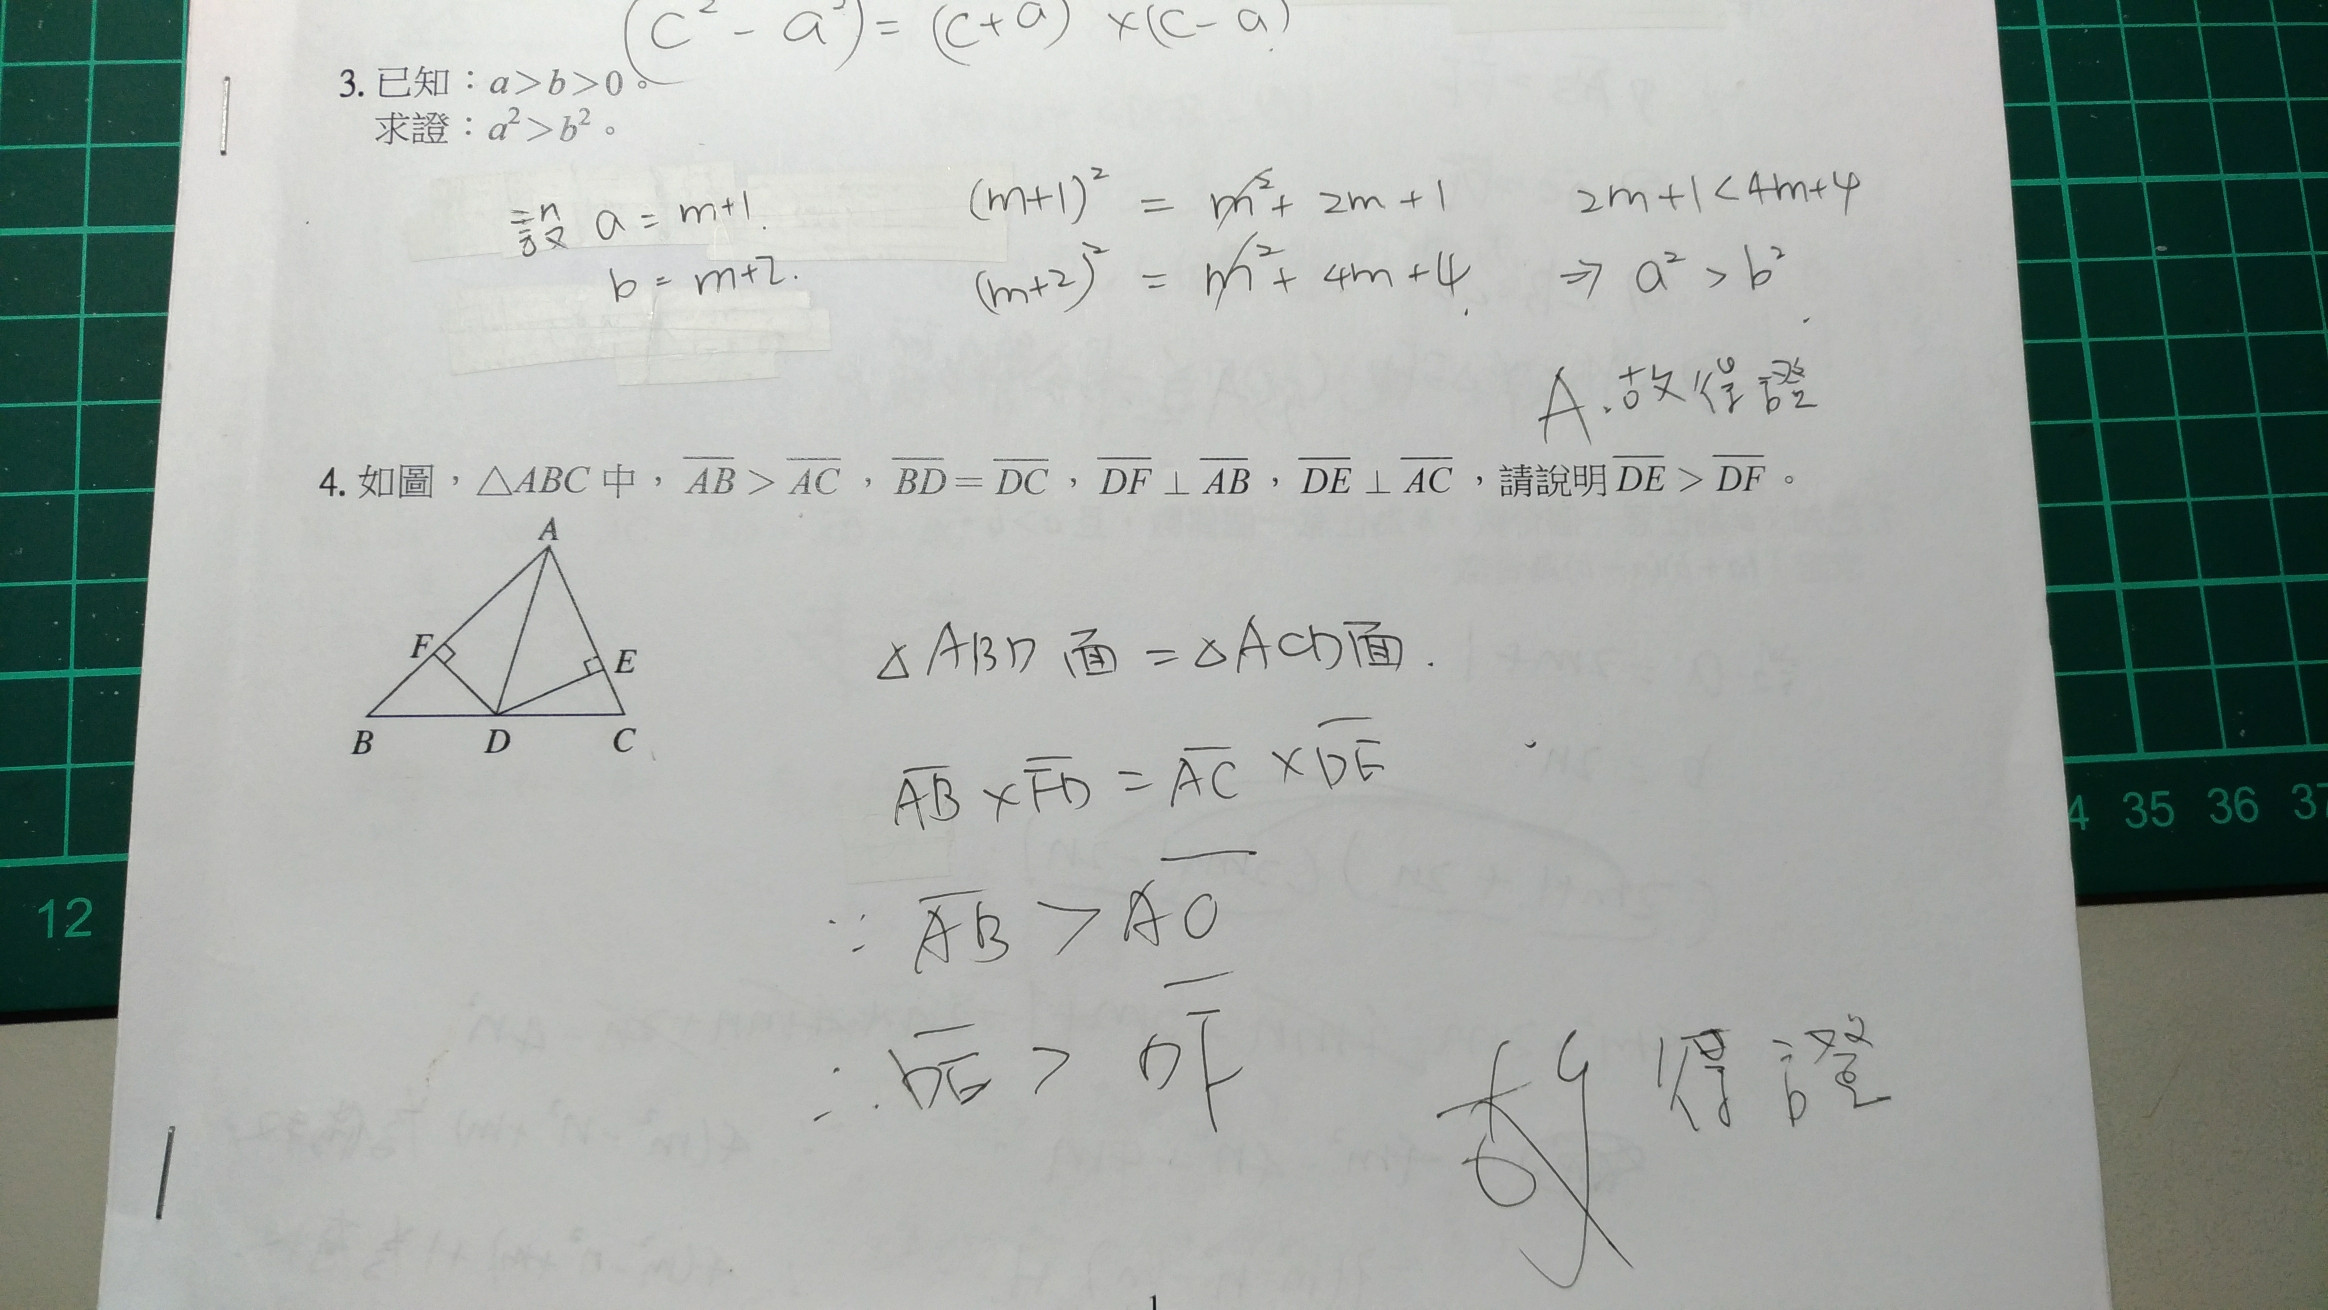 (c² - a²) = (c+a) × (c-a)
3. 已知：a>b>0。
求證：a²>b²。
設 a = m+1.
b = m+2.
(m+1)² = m² + 2m + 1
(m+2)² = m² + 4m + 4
2m+1 < 4m+4
⇒ a² > b²
A. 故得證
4. 如圖，△ABC 中，AB > AC，BD = DC，DF ⊥ AB，DE ⊥ AC，請說明 DE > DF。
A
F
E
B D C
△ABD面 = △ACD面.
AB × FD = AC × DE
∵ AB > AC
∴ DE > DF
故得證
12
34 35 36 37
1